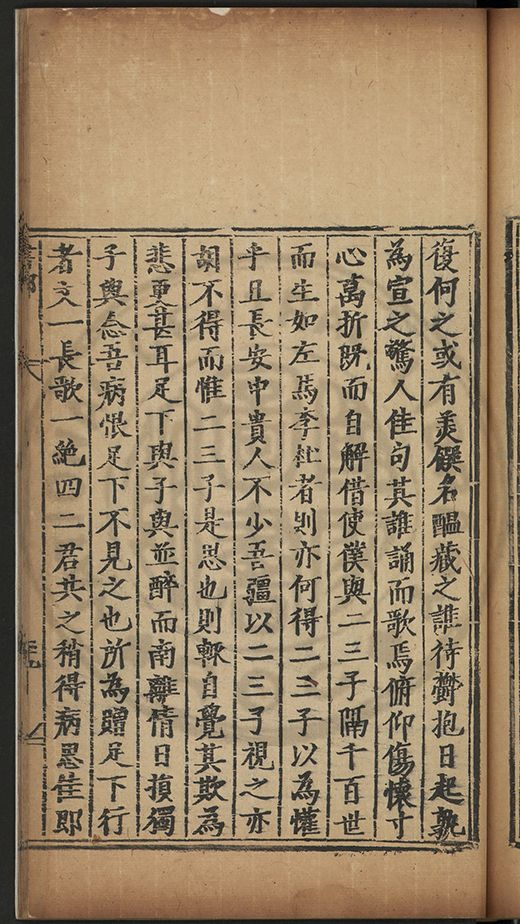 復何之或有羙饌名醖藏之誰待鬱抱日起孰
為宣之驚人佳句其誰誦而歌焉俯仰傷懷寸
心萬折既而自解借使僕與二三子隔千百世
而生如左馬李杜者則亦何得二三子以為懽
乎且長安中貴人不少吾疆以二三子視之亦
胡不得而惟二三子是思也則輙自覺其欺為
悲更甚耳足下與子與並醉而南離情日損獨
子與念吾病恨足下不見之也所為贈足下行
者文一長歌一絶四二君共之稍得病思佳即